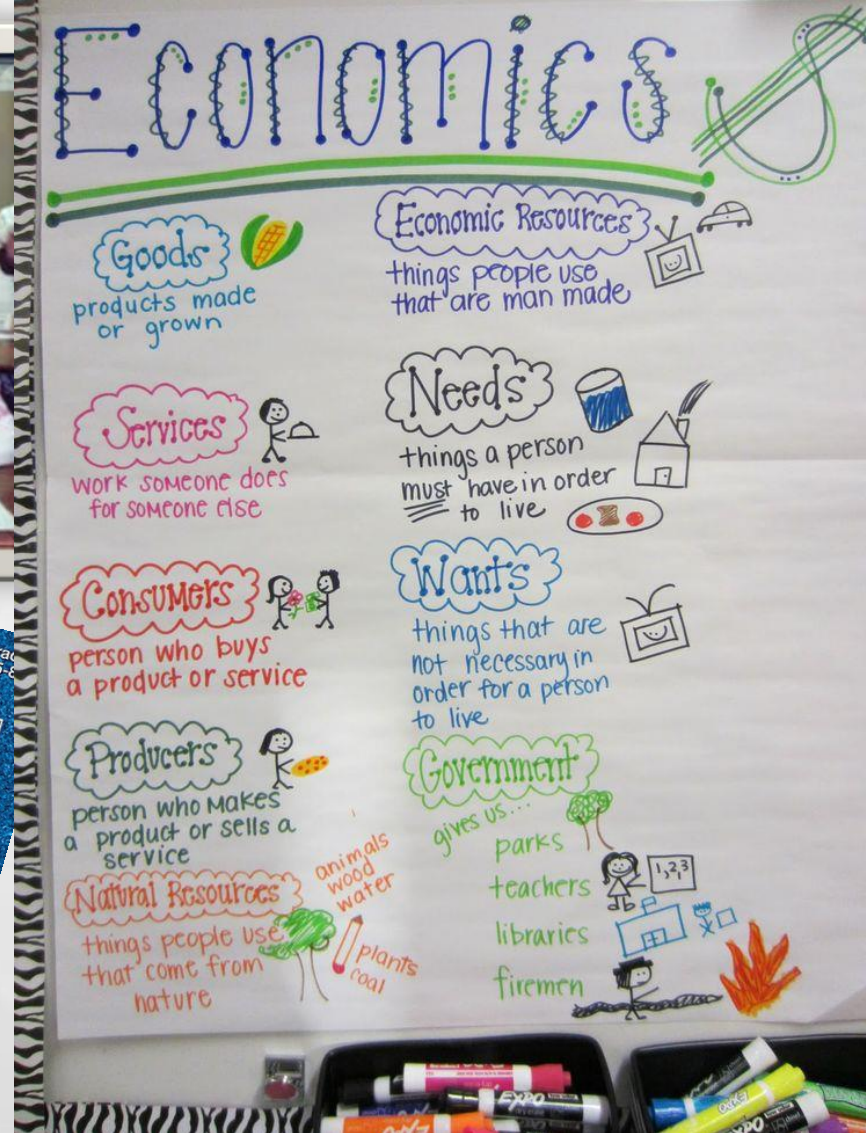 Economics
Goods
products made
or grown
Services
work someone does
for someone else
Consumers
person who buys
a product or service
Producers
person who makes
a product or sells a
service
Natural Resources
things people use
that come from
nature
animals
wood
water
plants
coal
Economic Resources
things people use
that are man made
Needs
things a person
must have in order
to live
Wants
things that are
not necessary in
order for a person
to live
Government
gives us...
parks
teachers
1,2,3
libraries
firemen
EXPO
EXPO